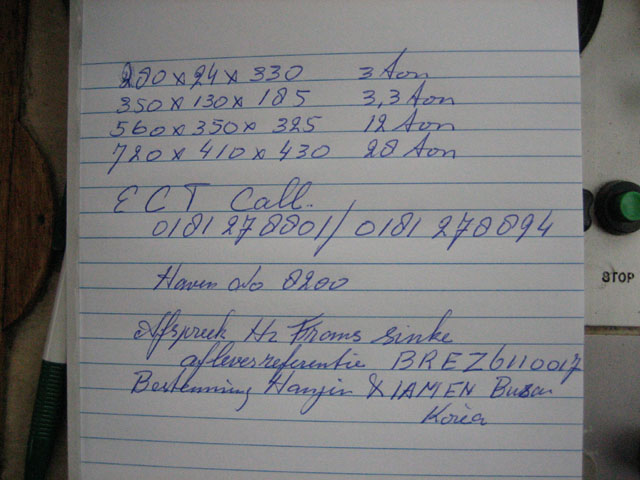 280 x 24 x 330 3 ton
350 x 130 x 185 3,3 ton
560 x 350 x 325 12 ton
720 x 410 x 430 28 ton
ECT Call.
0181 278801 / 0181 278894
Haven No 8200
Afspreek Hr Frans Sinke
afleverreferentie BREZ6110017
Bestemming Hanjin XIAMEN Busan
Korea
STOP